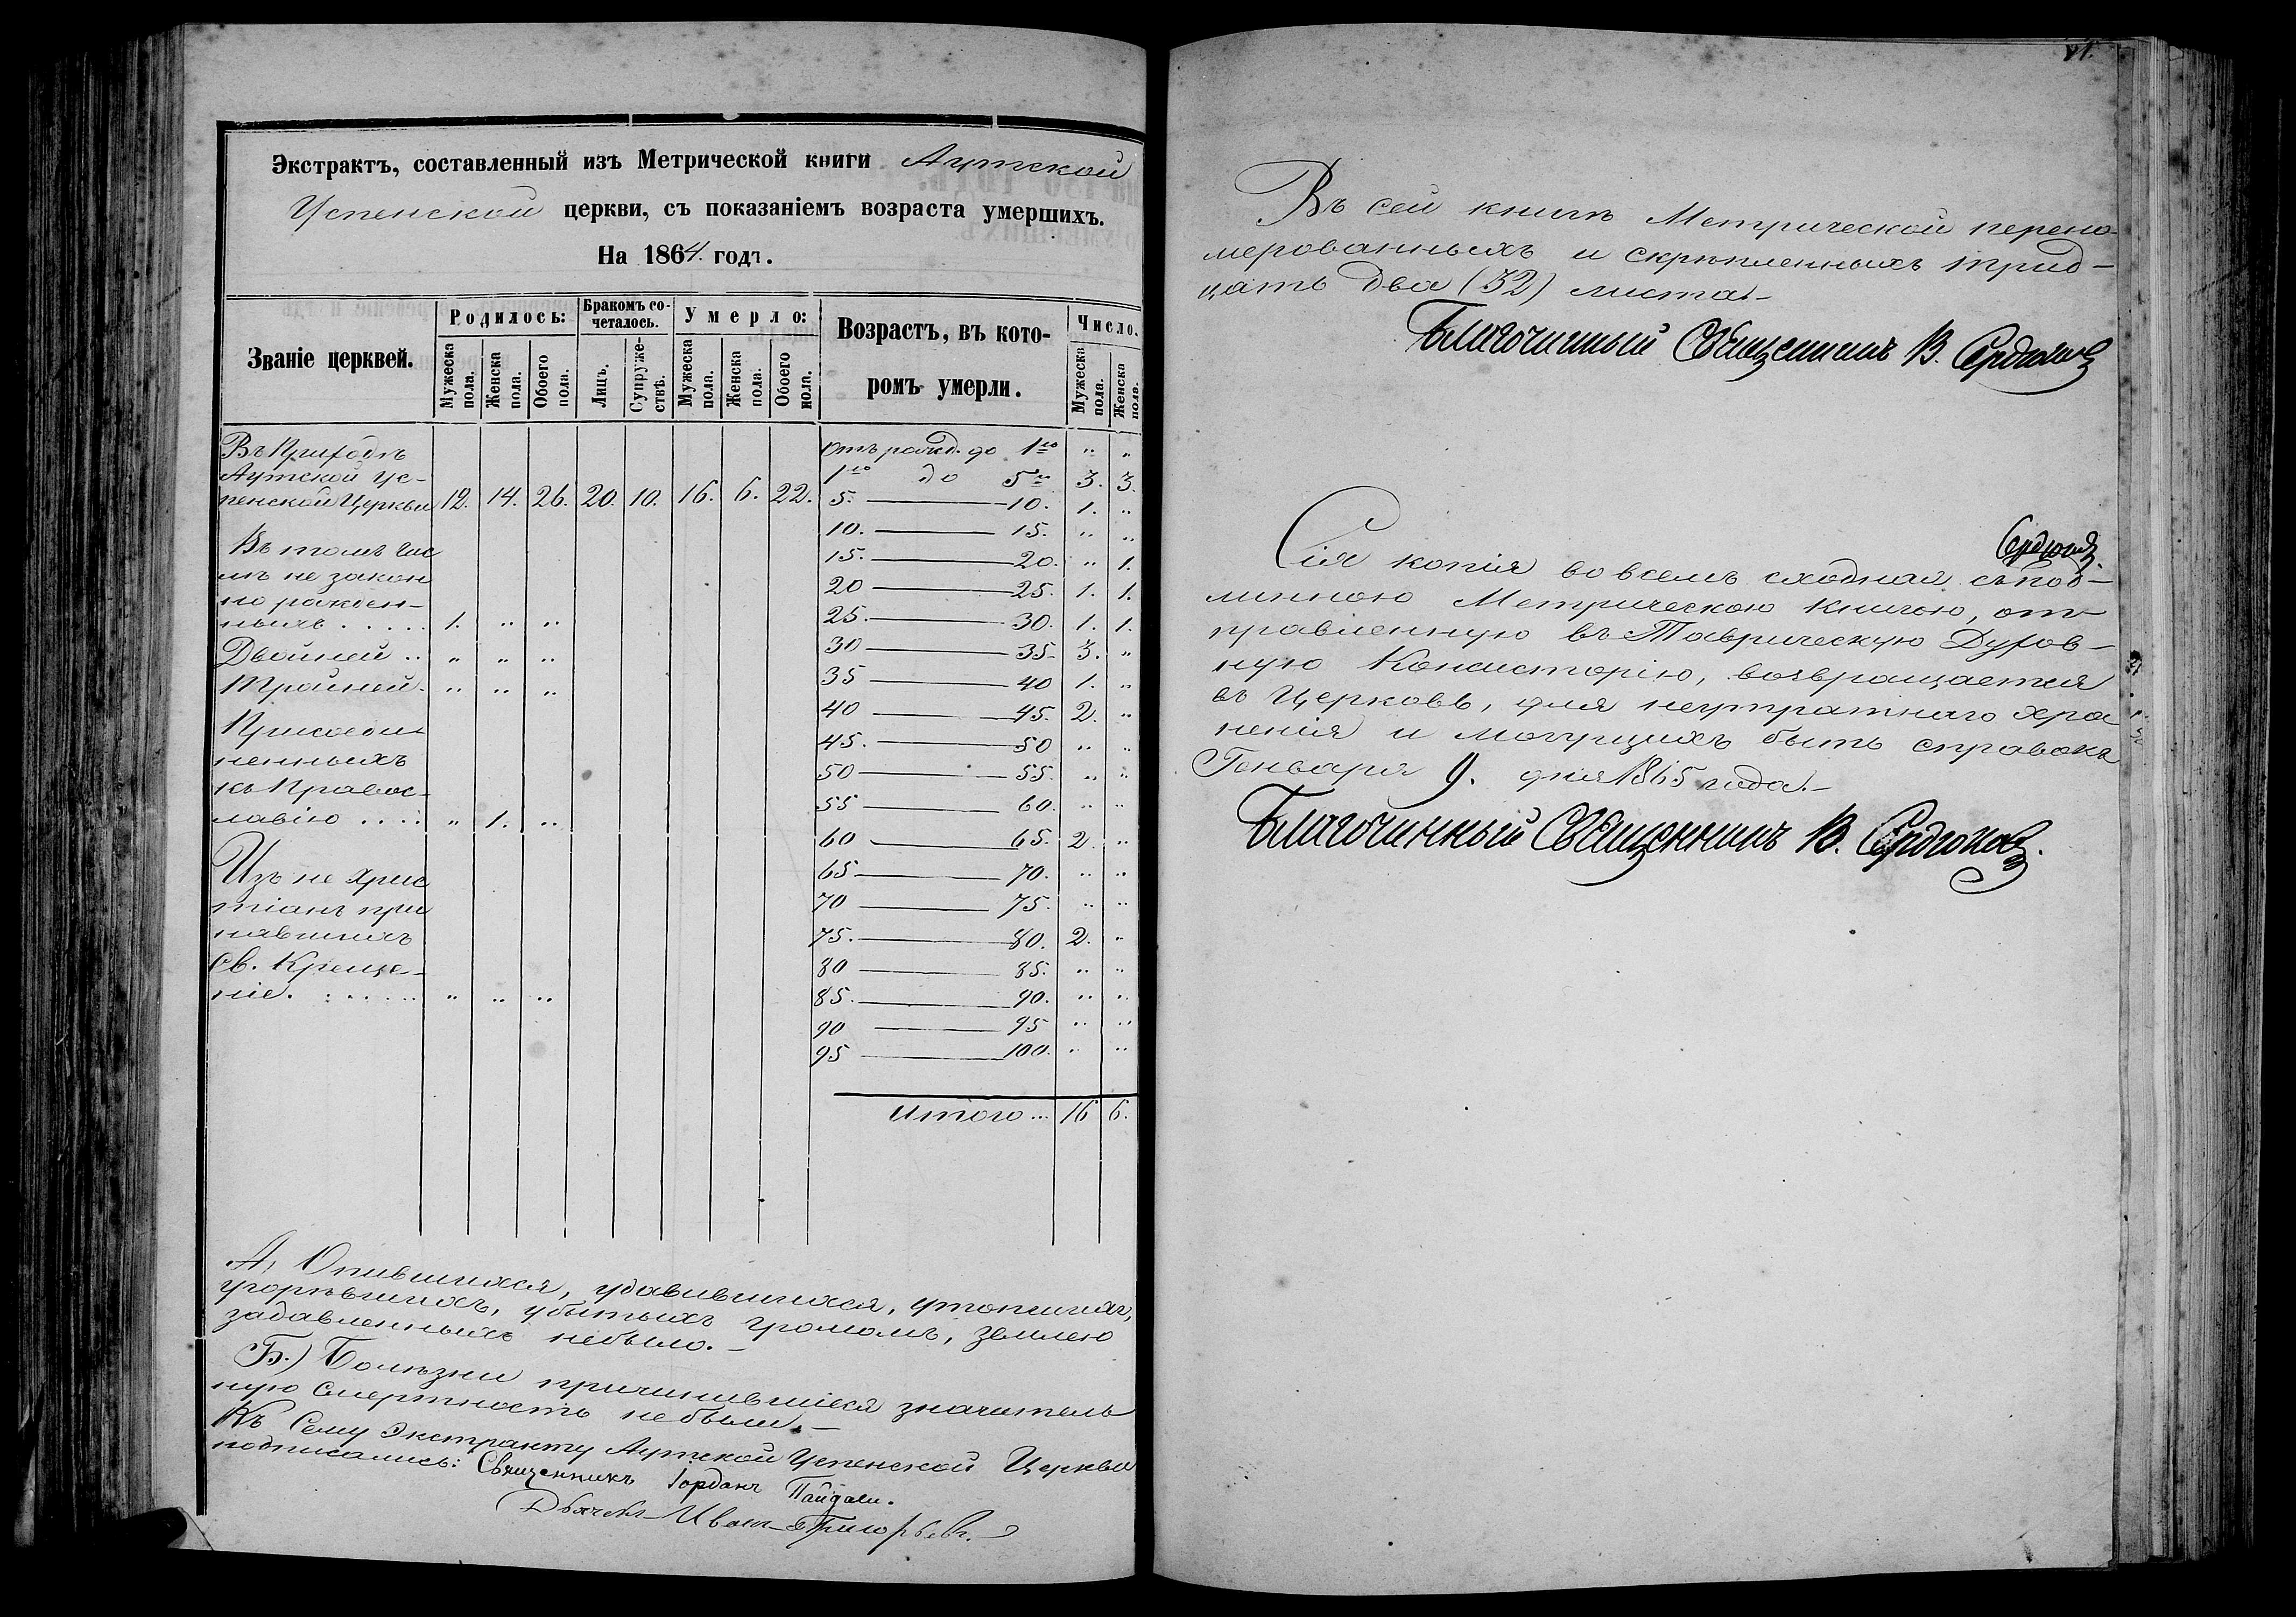 Экстрактъ, составленный изъ Метрической книги Аутской
Успенской церкви, съ показаніемъ возраста умершихъ.
На 1864. годъ.
Званіе церквей.
Родилось:
Бракомъ со-
четалось.
Умерло:
Возрастъ, въ кото-
ромъ умерли.
Число.
Мужеска пола.
Женска пола.
Обоего пола.
Лицъ.
Супруже-ствъ.
Мужеска пола.
Женска пола.
Обоего пола.
Мужеска пола.
Женска пола.
Въ Приходѣ
Аутской Ус-
пенской Церкви 12. 14. 26. 20. 10. 16. 6. 22.
Въ томъ чис
лѣ не закон
но рожден-
ныхъ ..... 1. " "
Двойней .. " " "
Тройней. " " "
Присоеди
ненныхъ
къ Правос-
лавію .... " 1. "
Изъ не Хрис
тіанъ при
нявшихъ
Св. Креще-
ніе. ...... " " "
Отъ рожд. до 1го " "
1го до 5ти 3. 3.
5. — 10. 1. "
10. — 15. " "
15. — 20. " 1.
20 — 25. 1. 1.
25. — 30. 1. 1.
30 — 35. 3. "
35 — 40 1. "
40 — 45. 2. "
45. — 50 " "
50 — 55. " "
55 — 60. " "
60 — 65. 2. "
65 — 70. " "
70 — 75. " "
75. — 80. 2. "
80 — 85. " "
85. — 90. " "
90 — 95 " "
95 — 100. " "
Итого ... 16 6.
А, Опившихся, удавившихся, утопшихъ,
угорѣвшихъ, убитыхъ громомъ, землею
задавленныхъ небыло. —
Б.) Болѣзни причинившіеся значитель
ную смертность небыли. —
Къ Сему Экстракту Аутской Успенской Церкви
подписались: Священникъ Іорданъ Пайдаси.
Дьячекъ Иванъ Григорьевъ.
Въ сей книгѣ Метрической перено-
мерованныхъ и скрѣпленныхъ трид-
цать два (32) листа. —
Благочинный Священникъ В. Сердюковъ
Сердюковъ.
Сія копія во всемъ сходная съ под-
линною Метрическою Книгою, от-
правленную въ Таврическую Духов-
ную Консисторію, возвращается
въ Церковь, для неутратнаго хра
ненія и могущихъ быть справокъ
Генваря 9. дня 1865 года. —
Благочинный Священникъ В. Сердюковъ.